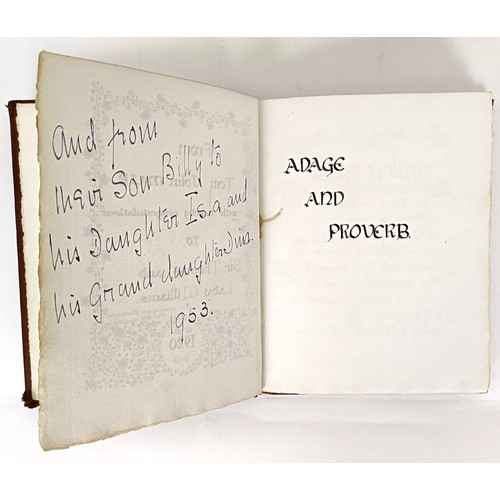 And from
their Son Billy to
his Daughter Isla and
his Grand daughter Dina.
1953.
ADAGE
AND
PROVERB.